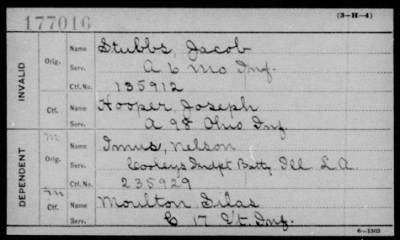 177016
(3-H-4)
INVALID
Orig.
Name Stubbs, Jacob
Serv. A 6 Mo Inf.
Ctf. No. 135912
Ctf.
Name Hooper, Joseph
Serv. A 98 Ohio Inf.
DEPENDENT
m
Orig.
Name Imus, Nelson
Serv. Cooleys Indpt Batty Ill L.A.
Ctf. No. 235929
m
Ctf.
Name Moulton Silas
Serv. C 17 Vt. Inf.
6-1303